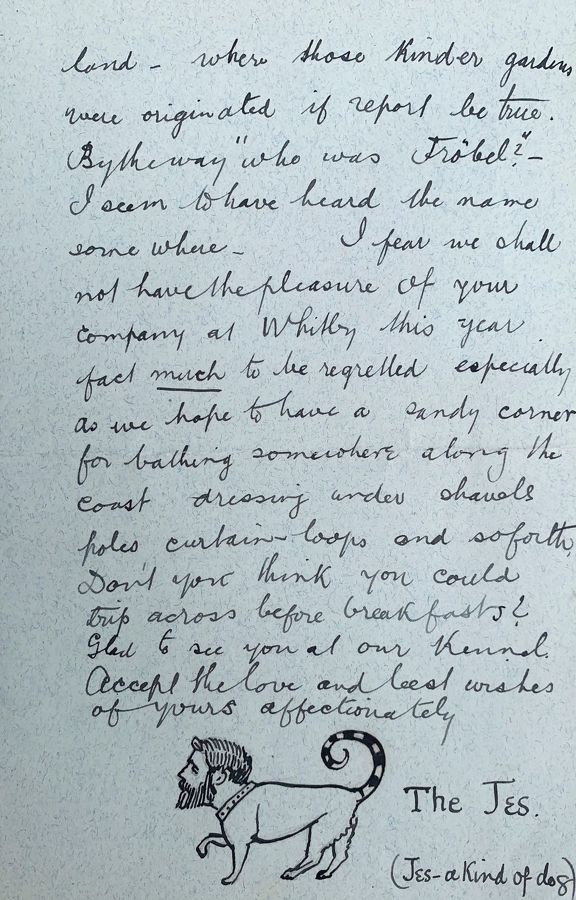 land - where those Kinder gardens
were originated if report be true.
By the way "who was Fröbel?" -
I seem to have heard the name
some where - I fear we shall
not have the pleasure of your
company at Whitby this year
fact much to be regretted especially
as we hope to have a sandy corner
for bathing somewhere along the
coast dressing under shawls
poles curtain-loops and soforth,
Don't you think you could
trip across before breakfasts?
Glad to see you at our Kennel.
Accept the love and best wishes
of yours affectionately
The Jɛs.
(Jɛs - a Kind of dog)